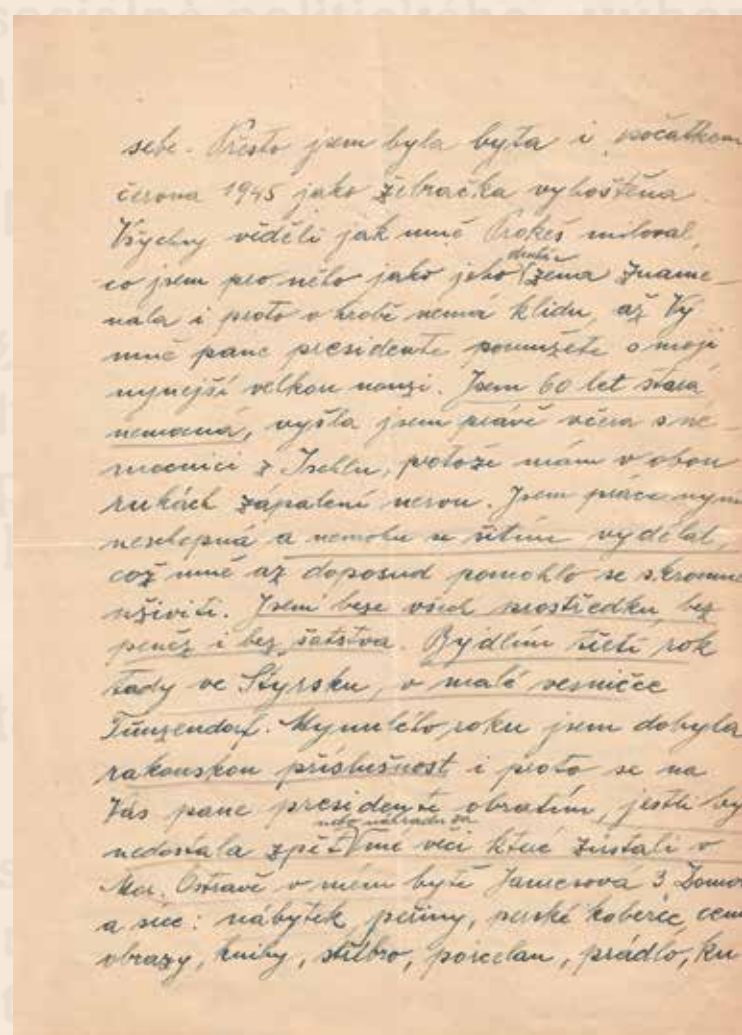 sebe. Přesto jsem byla byta i počátkem
června 1945 jako žebračka vyhoštěna
Všychny věděli jak mně Prokeš miloval,
co jsem pro něho jako jeho žena zname-
nala i proto v hrobě nemá klidu, až Vy
mně pane presidente pomužete v moji
nynejší velkou nouzi. Jsem 60 let stará
nemocná, vyšla jsem právě včera s ne-
mocnici z Ischlu, protože mám v obou
rukách zápalení nervu. Jsem práce nyní
neschopná a nemohu se šitím vydělat,
což mně až doposud pomohlo se skromně
uživiti. Jsem beze všech prostředku, bez
peněz i bez šatstva. Bydlím třetí rok
tady ve Štyrsku, v malé vesničce
Tunzendorf. Mynulého roku jsem dobyla
rakouskou příslušnost i proto se na
Vás pane presidente obratím, jestli by
nebo náhradu za
nedostala zpět mé věci které zůstali v
Mor. Ostravě v mém bytě 3
a sice: nábytek, peřiny, perské koberce,
obrazy, knihy, stříbro, porcelan, prádlo, ku